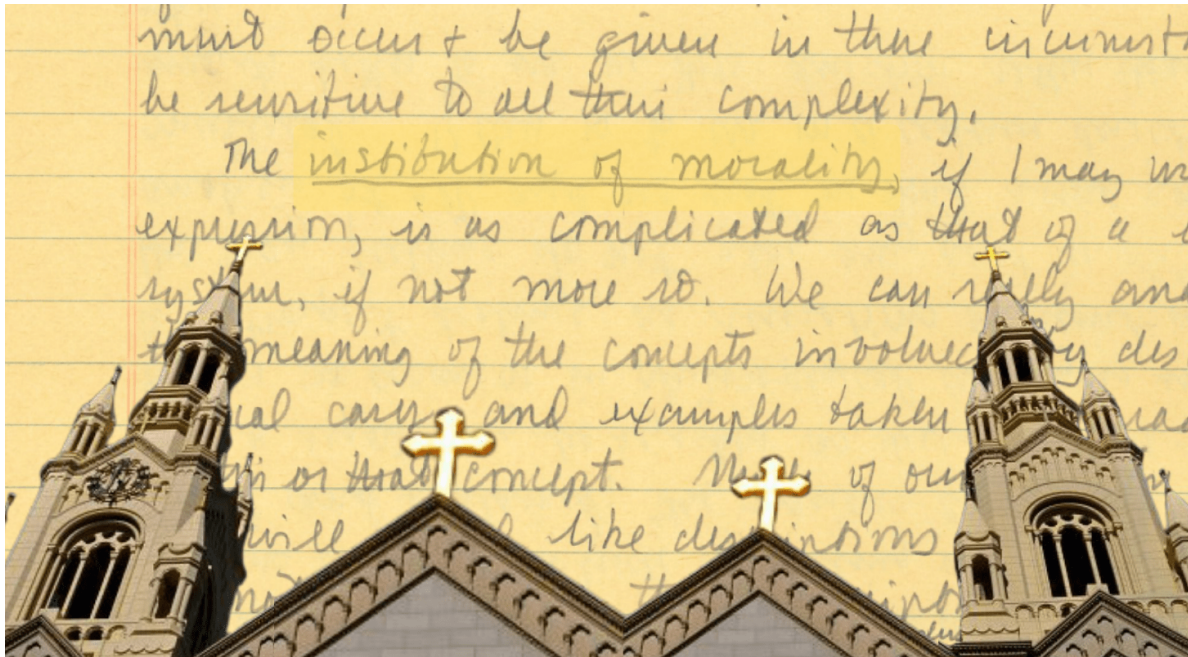 must occur & be given in these circumst
be sensitive to all their complexity.
The institution of morality, if I may us
expression, is as complicated as that of a
system, if not more so. We can really ana
the meaning of the concepts involved by des
ual cases and examples taken
or that concept. Much of our
will like descriptions